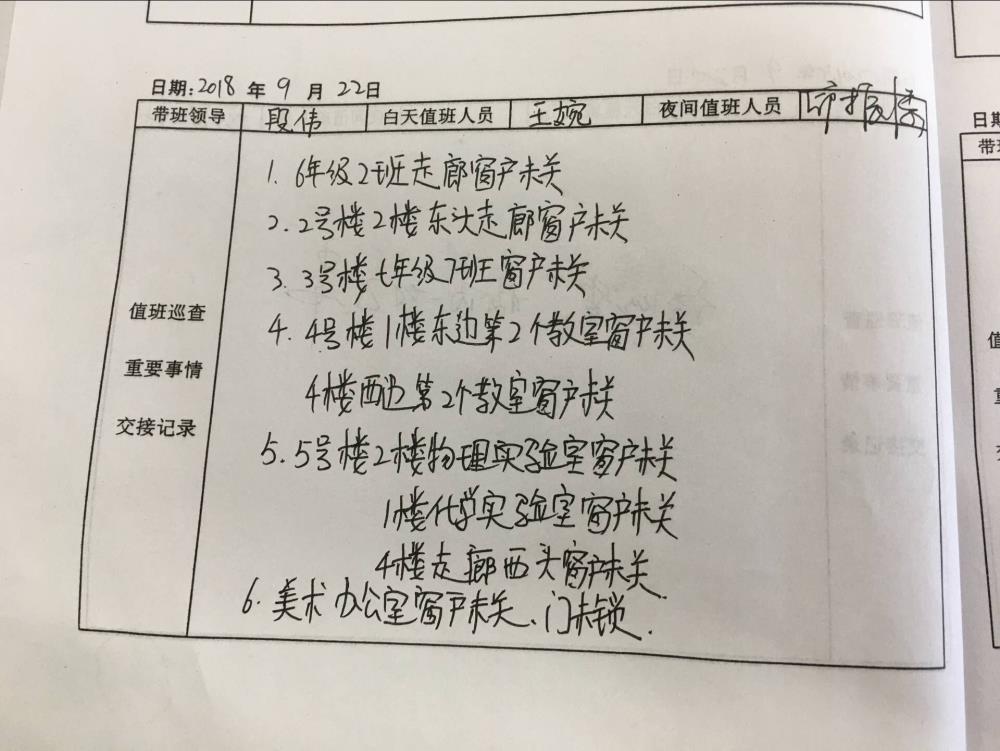 日期:2018 年 9 月 22日
带班领导 段伟 白天值班人员 王婉 夜间值班人员
1. 6年级2班走廊窗户未关
2. 2号楼2楼东头走廊窗户未关
3. 3号楼七年级7班窗户未关
值班巡查
4. 4号楼1楼东边第2个教室窗户未关
重要事情
4楼西边第2个教室窗户未关
交接记录
5. 5号楼2楼物理实验室窗户未关
1楼化学实验室窗户未关
4楼走廊西头窗户未关.
6. 美术办公室窗户未关、门未锁.
日期
带班